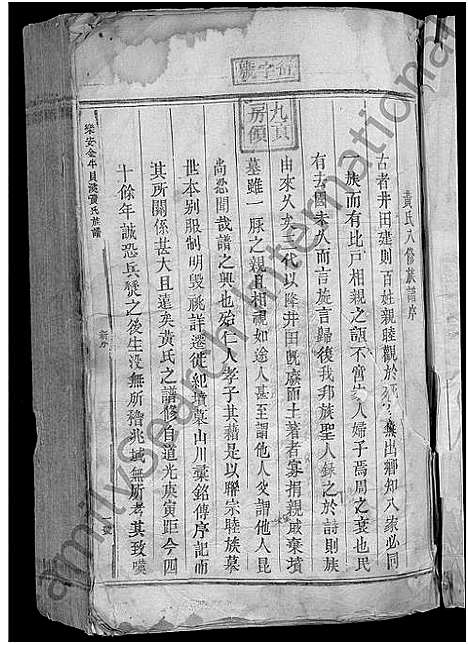 黄氏八修族譜序
古者井田建則百姓親睦觀於死徙無出鄉知八家必同
一族而有比戶相親之誼不啻家人婦子焉周之衰也民
有去國未久而言旋言歸復我邦族聖人錄之於詩則族
由來久矣三代以降井田既廢而土著者寡捐親戚棄墳
墓雖一脈之親且相視如途人甚至謂他人父謂他人昆
尚忍聞哉譜之興也殆仁人孝子其藉是以聯宗睦族慕
世本别服制明毀祧詳遷徙紀墳墓山川彙銘傳序記而
其所關係甚大且遠矣黄氏之譜修自道光庚寅距今四
十餘年誠恐兵燹之後生没無所稽兆域無所考其致嘆
樂安金牛貝溪黄氏族譜
新序
號字
九頁
房領
FamilySearch International